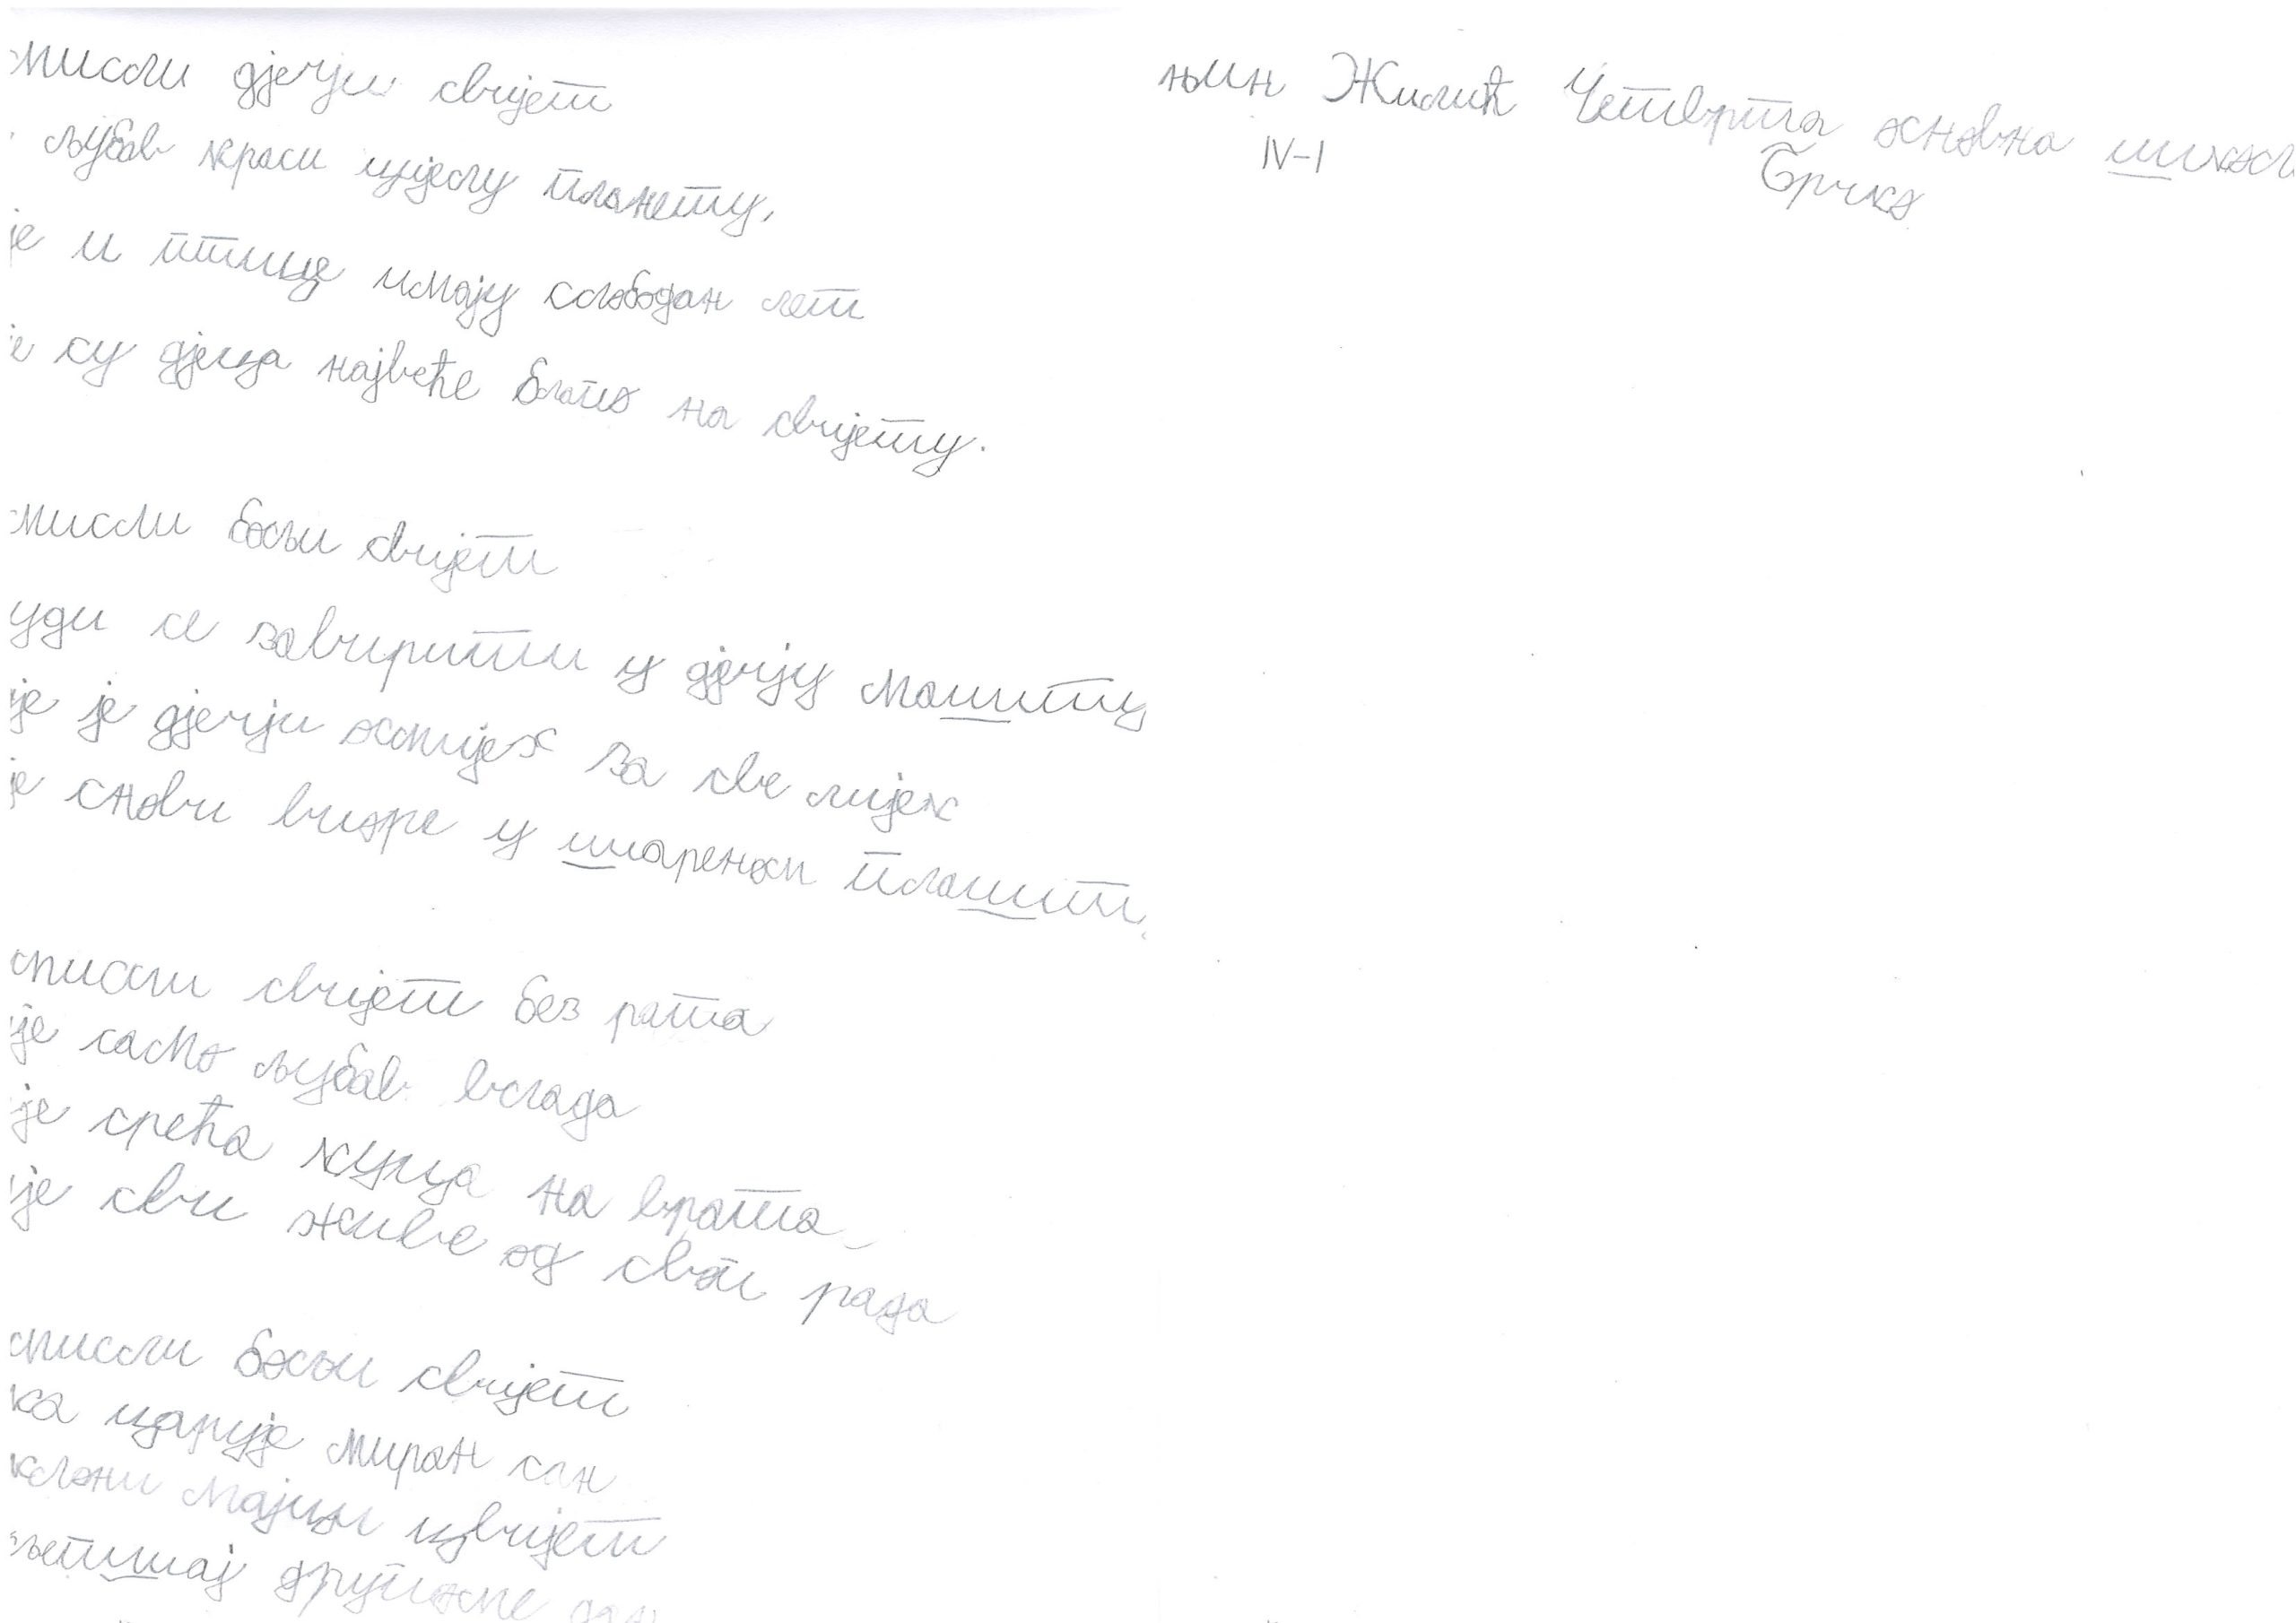 мисли дјечји свијет
љубав краси цијелу планету,
је и птице имају слободан лет
е су дјеца највеће благо на свијету.
мисли бољи свијет
уди се завирити у дјечју машту
је је дјечји осмијех за све лијек
је снови вире у шареном плашту
мисли свијет без рата
је само љубав влада
је срећа куца на врата
је сви живе од свог рада
мисли бољи свијет
ка царује миран сан
клони мајци цвијет
љепшај другоме дан
њин Жилић Четврта основна школ
IV-1 Брчко